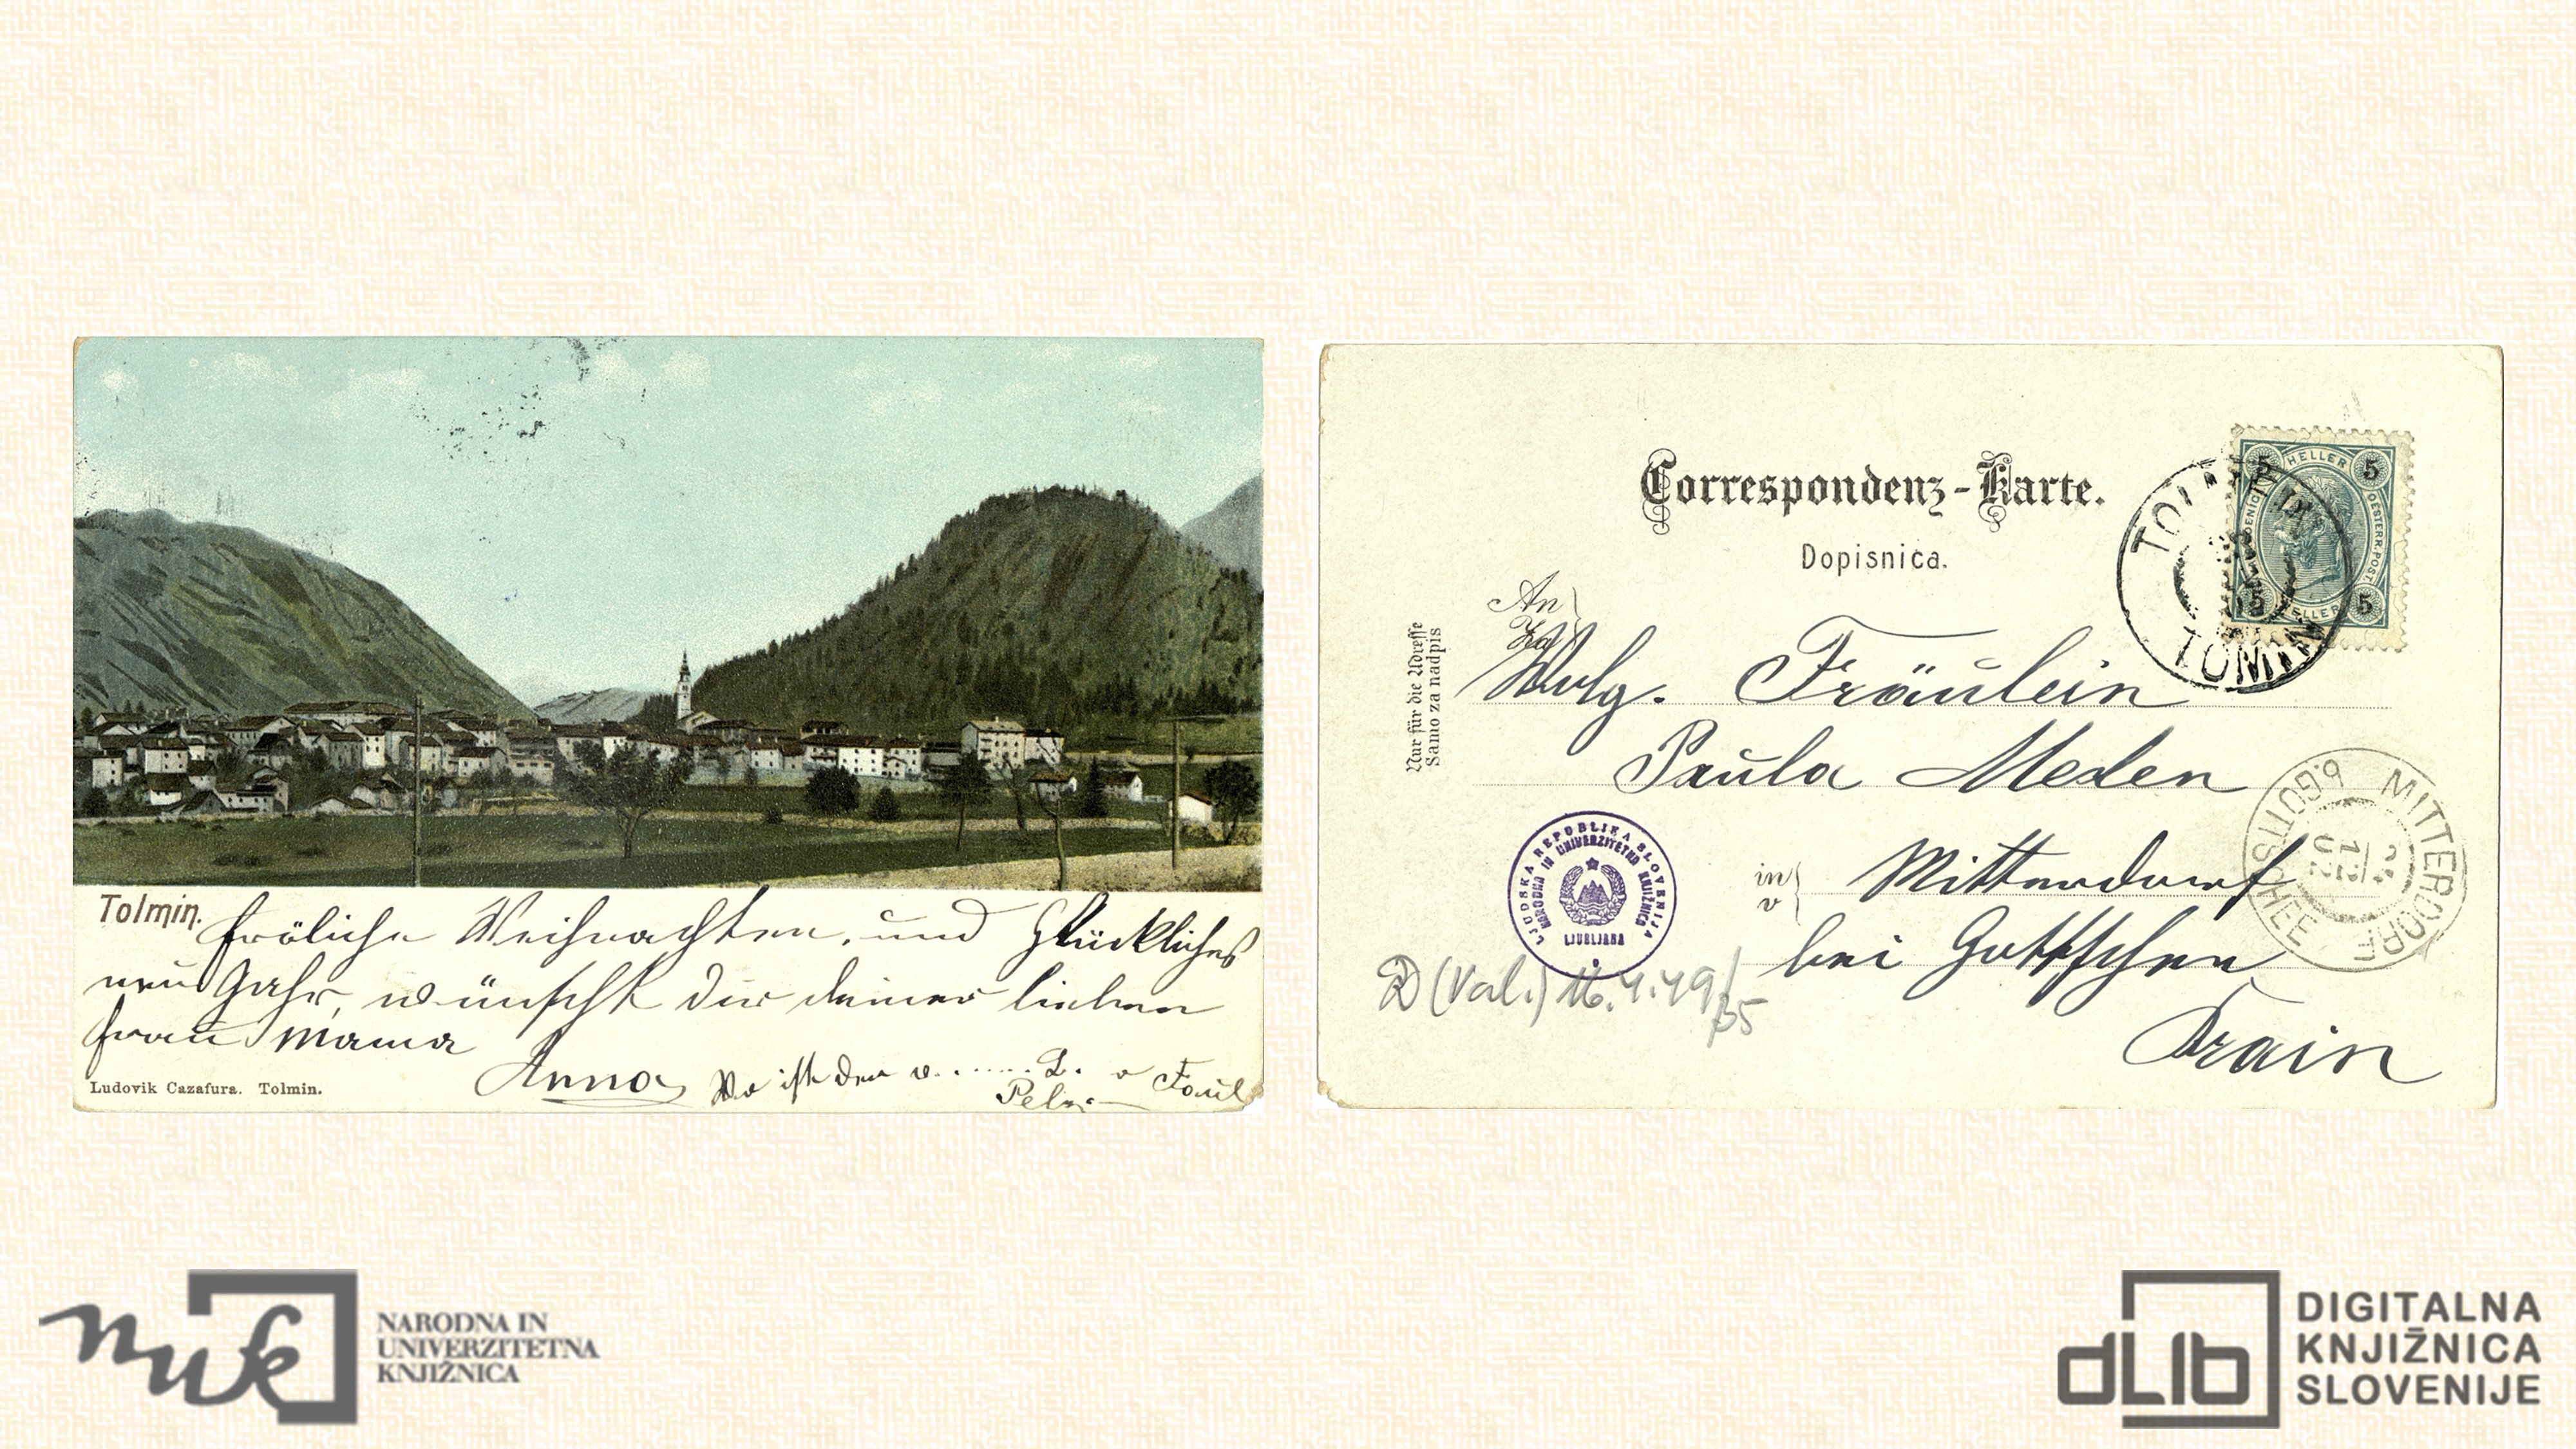 Tolmin.
fröliche Weihnachten, und Glückliches
neues Jahr, wünscht dir deiner lieben
Frau Mama
Anna
Wo ist der v. ...... L.
Ludovik Cazafura. Tolmin.
Correspondenz-Karte.
Dopisnica.
An
Za
Nur für die Adresse
Samo za nadpis
Wolg. Fräulein
Paula Meden
in
v
Mitterdorf
bei Gottschee
Krain
5 HELLER 5
OESTERR. POST.
5 HELLER 5
TOLMEIN
TOLMIN
MITTERDORF
B. GOTTSCHEE
LJUDSKA REPUBLIKA SLOVENIJA
NARODNA IN UNIVERZITETNA KNJIŽNICA
LJUBLJANA
D (Val.) 16.4.49/35
nuk
NARODNA IN
UNIVERZITETNA
KNJIŽNICA
dLib
DIGITALNA
KNJIŽNICA
SLOVENIJE